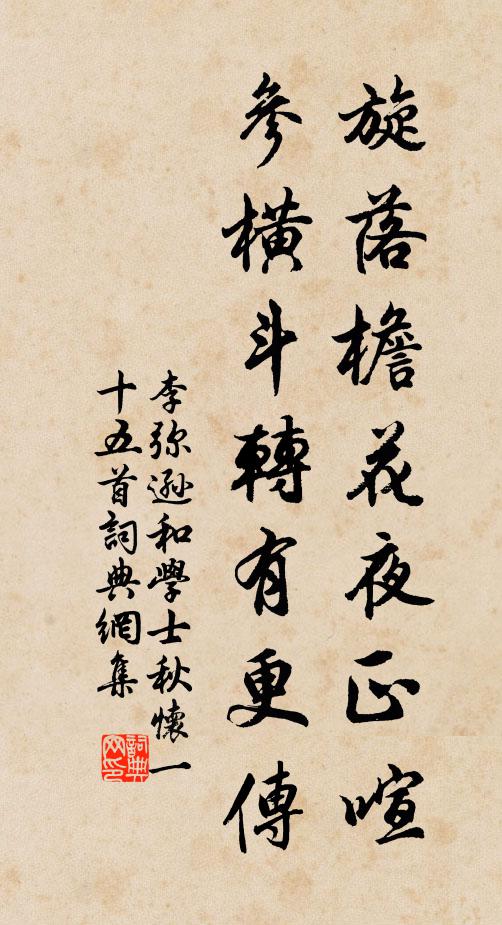 旋落檐花夜正喧
參橫斗轉有更傳
李弥遜和學士秋懷一
十五首詞典網集
詞典
网印